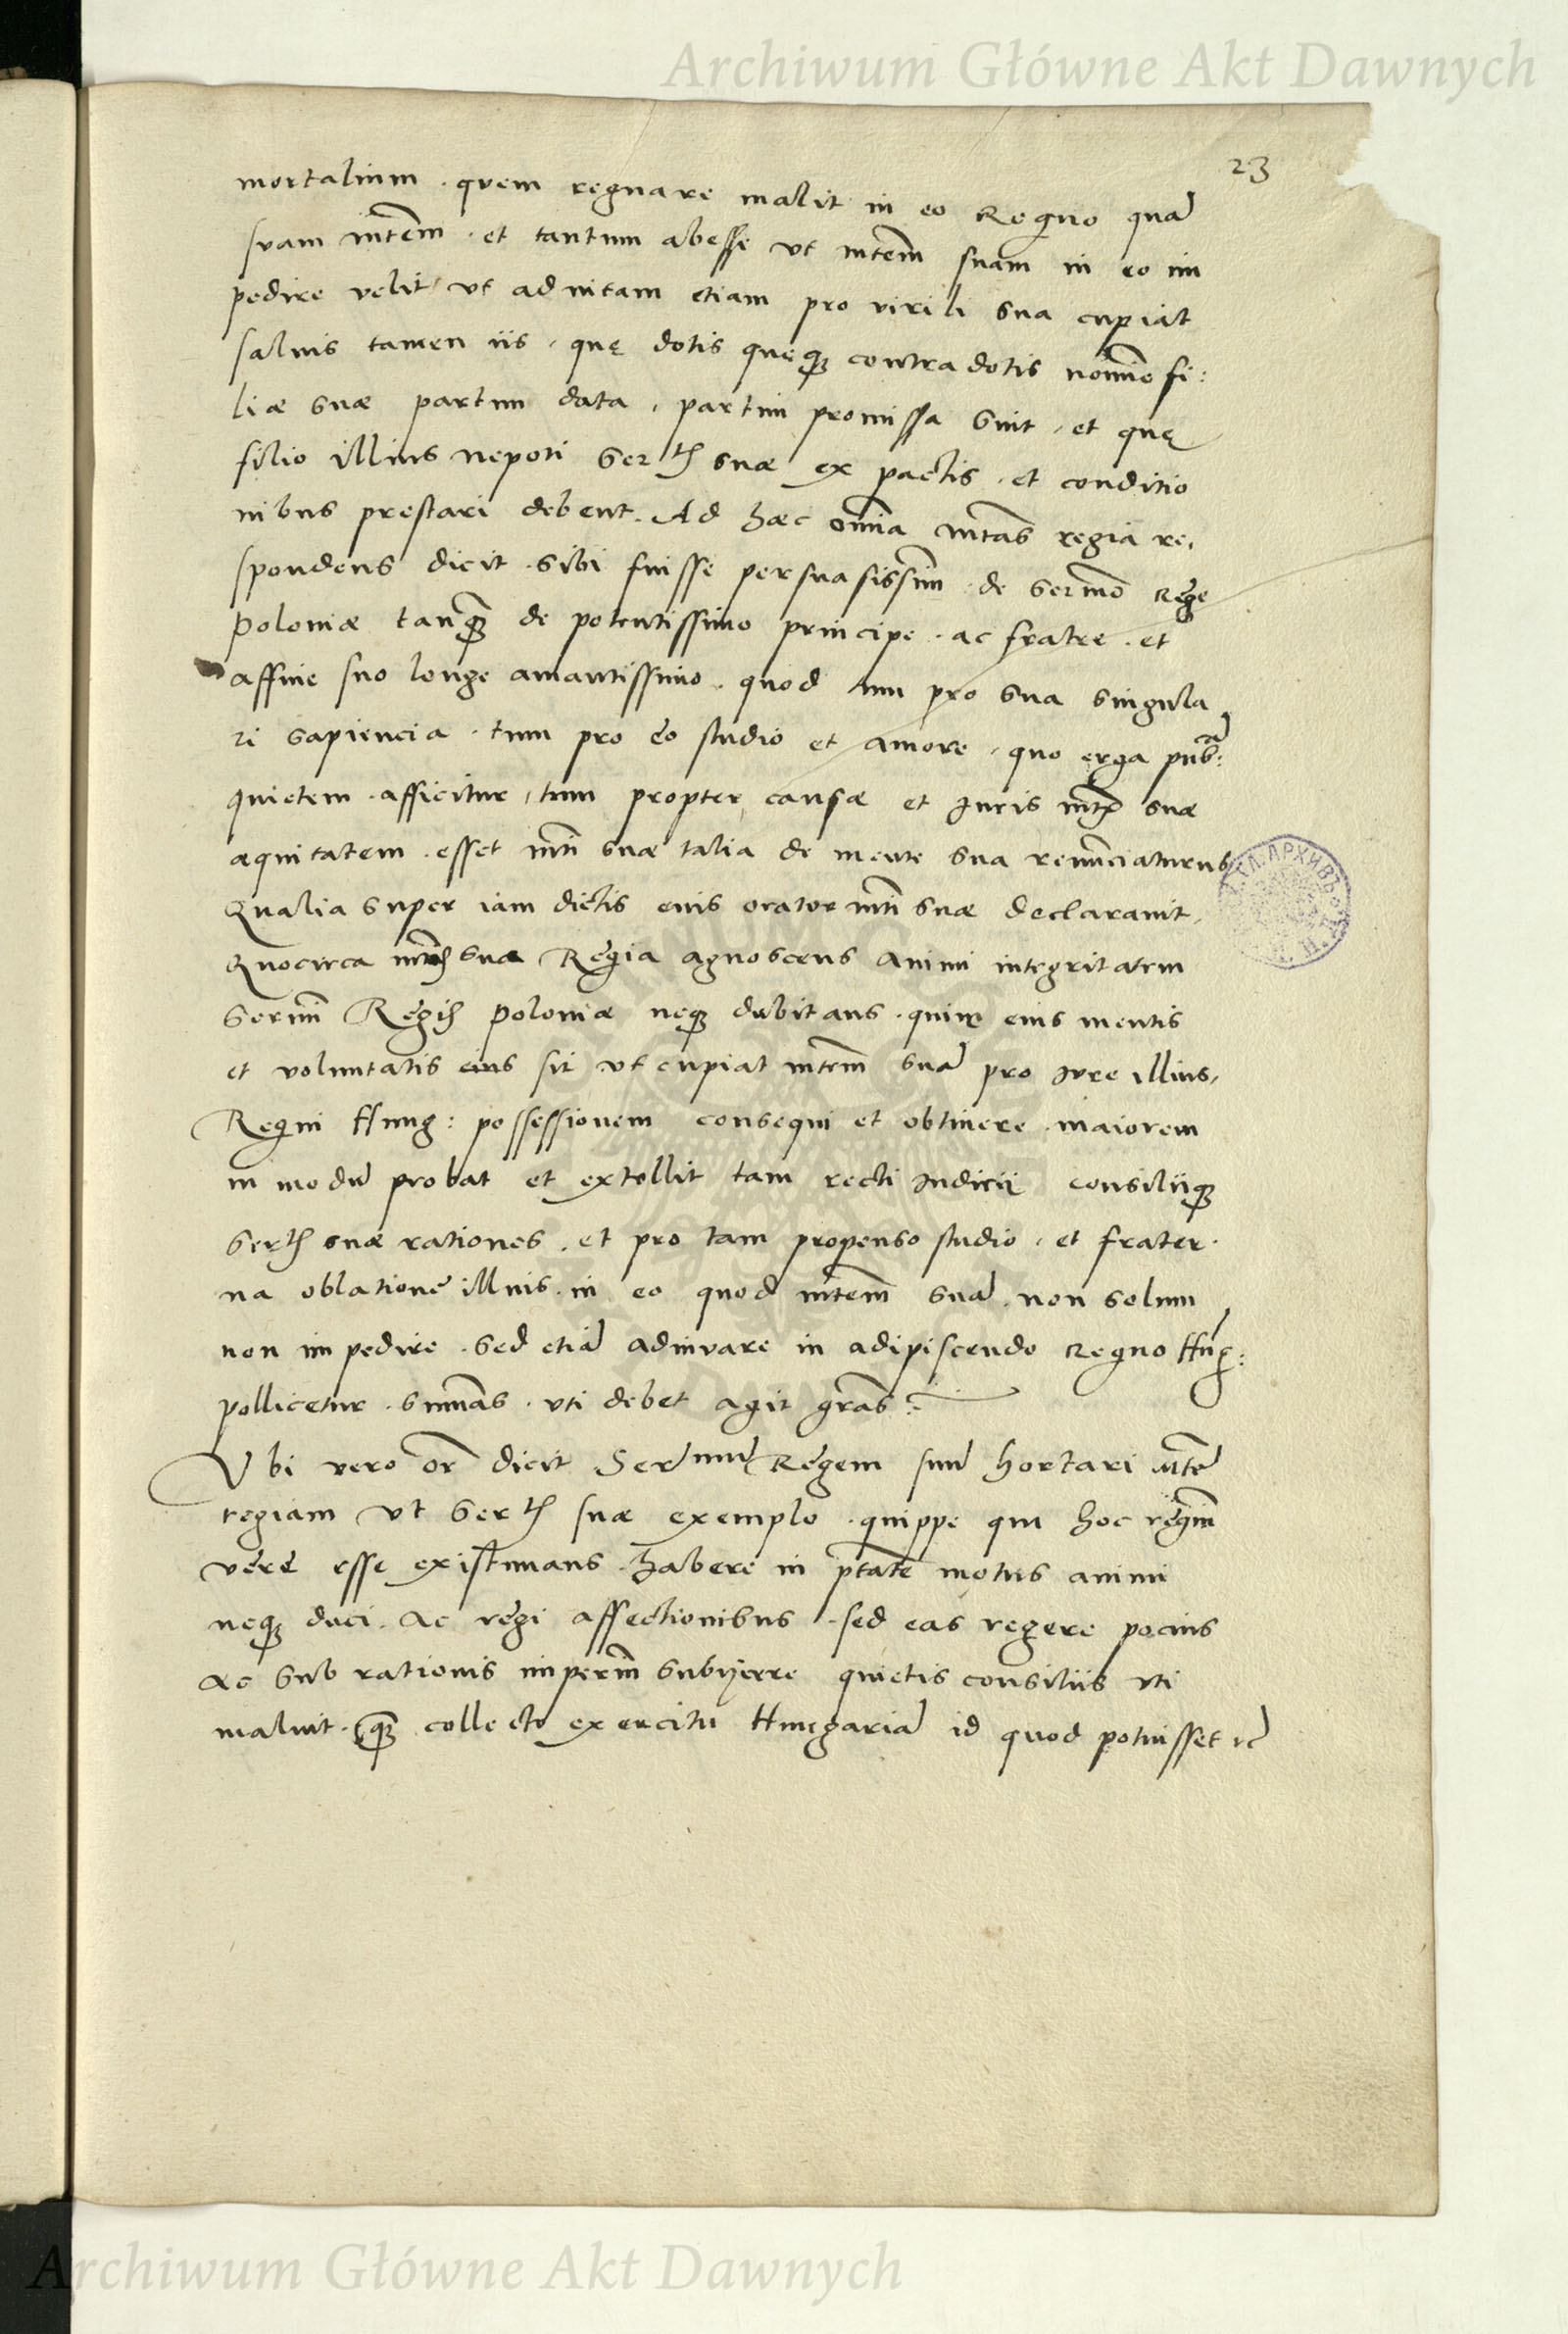 Archiwum Główne Akt Dawnych
23
mortalium. quem regnare malit in eo Regno quã
suam mtem̃. et tantum abesse ut mtem̃ suam in eo im
pedire velit ut ad vitam etiam pro virili sua cupiat
salvis tamen iis, quę dotis queq; contradotis nomine fi:
liæ suæ partim data, partim promissa sunt, et quę
filio illius nepoti Sertis suæ ex pactis, et conditio
nibus prestari debent. Ad hæc omnia mtas regia re,
spondens dicit sibi fuisse persuasissim̃ de Sermo Rege
Poloniæ tanq; de potentissimo principe. ac fratre. et
affine suo longe amantissimo. quod tum pro sua singula
ri sapiencia. tum pro eo studio et amore, quo erga pub:cã
quietem afficitur, tum propter causæ et Juris mtis suæ
æquitatem. esset mti suæ talia de mente sua renunciaturus
Qualia super iam dictis eius orator mti suæ declaravit,
Quocirca sua Regia agnoscens animi integritatem
Sermi Regis Poloniæ neq; dubitans. quin eius mentis
et voluntatis eius sit ut cupiat mtem̃ suã pro Jure illius,
Regni Hung: possessionem consequi et obtinere. maiorem
in modũ probat et extollit tam recti Judicii consiliiq;
Sertis suæ rationes. et pro tam propenso studio. et frater.
na oblatione illius. in eo quod mtem̃ suã. non solum
non impedire. sed etiã adiuvare in adipiscendo Regno Hung:
pollicetur. summas. uti debet agit gras:
Ubi vero or̃ dicit Sermũ Regem suũ hortari Mtẽ
regiam ut Sertis suæ exemplo. quippe qui hoc regiũ
vere esse existimans. habere in ptate motus animi
neq; duci. ac regi affectionibus. sed eas regere pocius
ac sub rationis imperiũ subijcere quietis consiliis uti
maluit. q; collecto exercitu Hungariã id quod potuisset
Archiwum Główne Akt Dawnych